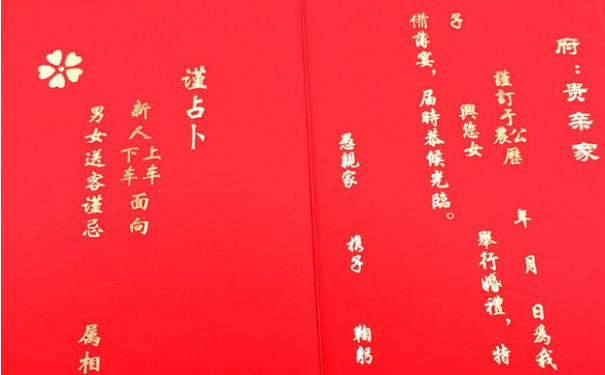 府：贵亲家
謹訂于公農歷 年 月 日爲我
子 興您女 舉行婚禮，特
備薄宴，届時恭候光臨。
愚親家 携子 鞠躬
谨占卜
新人上车下车面向
男女送客谨忌 属相